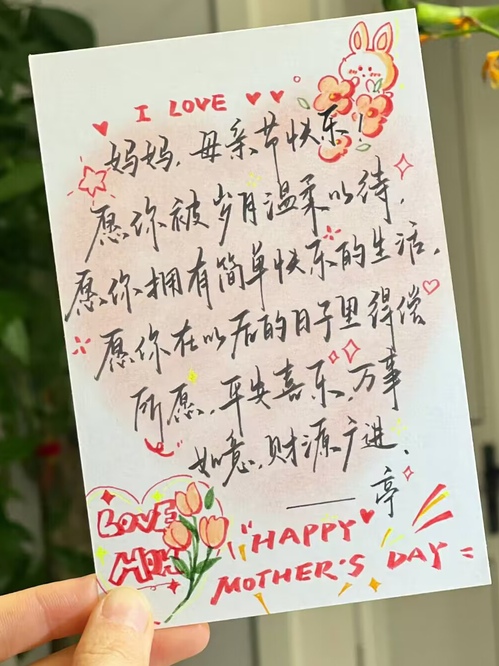 I LOVE
妈妈,母亲节快乐!
愿你被岁月温柔以待,
愿你拥有简单快乐的生活,
愿你在以后的日子里得偿
所愿,平安喜乐,万事
如意,财源广进.
——亭
LOVE
MOM
"HAPPY
MOTHER'S DAY